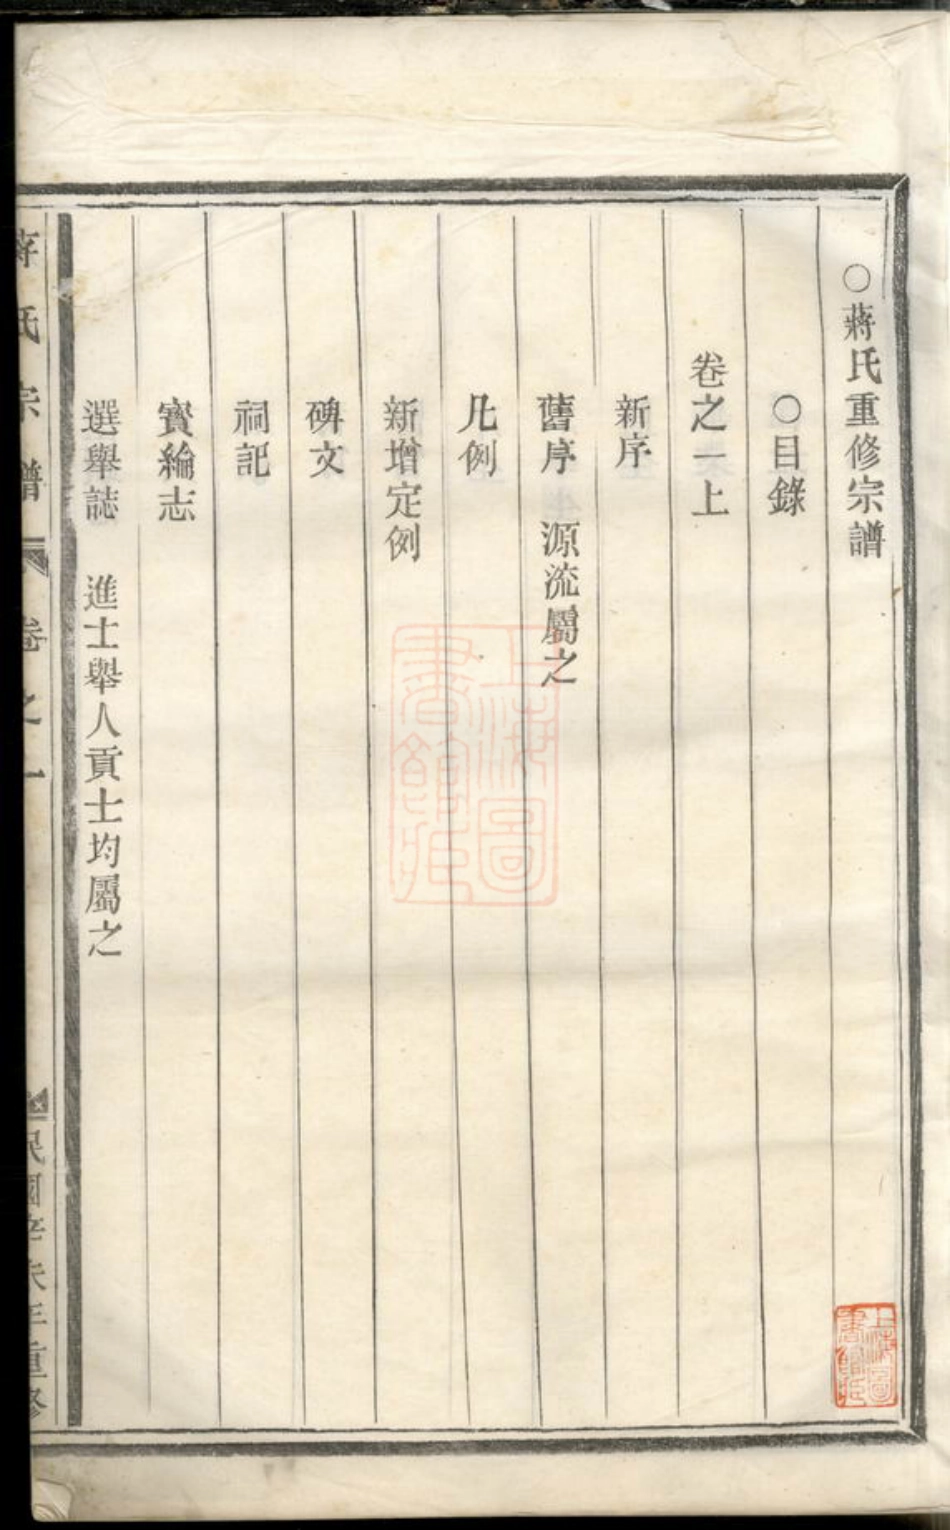 ○蔣氏重修宗譜
○目錄
卷之一上
新序
舊序 源流屬之
凡例
新增定例
碑文
祠記
寶綸志
選舉誌 進士舉人貢士均屬之
蔣氏宗譜 卷之一 民國辛未年重修
上海圖書館藏
上海圖書館藏